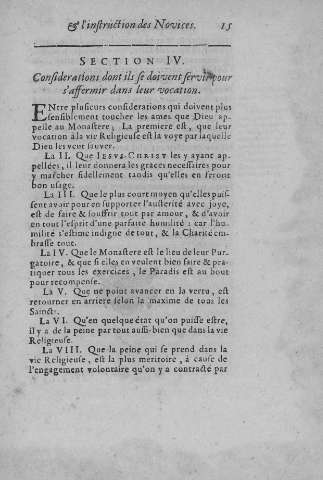 & l'instruction des Novices. 15
SECTION IV.
Considerations dont ils se doivent servir pour
s'affermir dans leur vocation.
ENtre plusieurs considerations qui doivent plus
sensiblement toucher les ames que Dieu ap-
pelle au Monastere; La premiere est, que leur
vocation à la vie Religieuse est la voye par laquelle
Dieu les veut sauver.
La II. Que JESUS-CHRIST les y ayant ap-
pellées, il leur donnera les graces necessaires pour
y marcher fidellement tandis qu'elles en feront
bon usage.
La III. Que le plus court moyen qu'elles puis-
sent avoir pour en supporter l'austerité avec joye,
est de faire & souffrir tout par amour, & d'avoir
en tout l'esprit d'une parfaite humilité: car l'hu-
milité s'estime indigne de tout, & la Charité em-
brasse tout.
La IV. Que le Monastere est le lieu de leur Pur-
gatoire, & que si elles en veulent bien faire & pra-
tiquer tous les exercices, le Paradis est au bout
pour recompense.
La V. Que ne point avancer en la vertu, est
retourner en arriere selon la maxime de tous les
Saincts.
La VI. Qu'en quelque état qu'on puisse estre,
il y a de la peine par tout aussi-bien que dans la vie
Religieuse.
La VIII. Que la peine qui se prend dans la
vie Religieuse, est la plus meritoire, à cause de
l'engagement volontaire qu'on y a contracté par